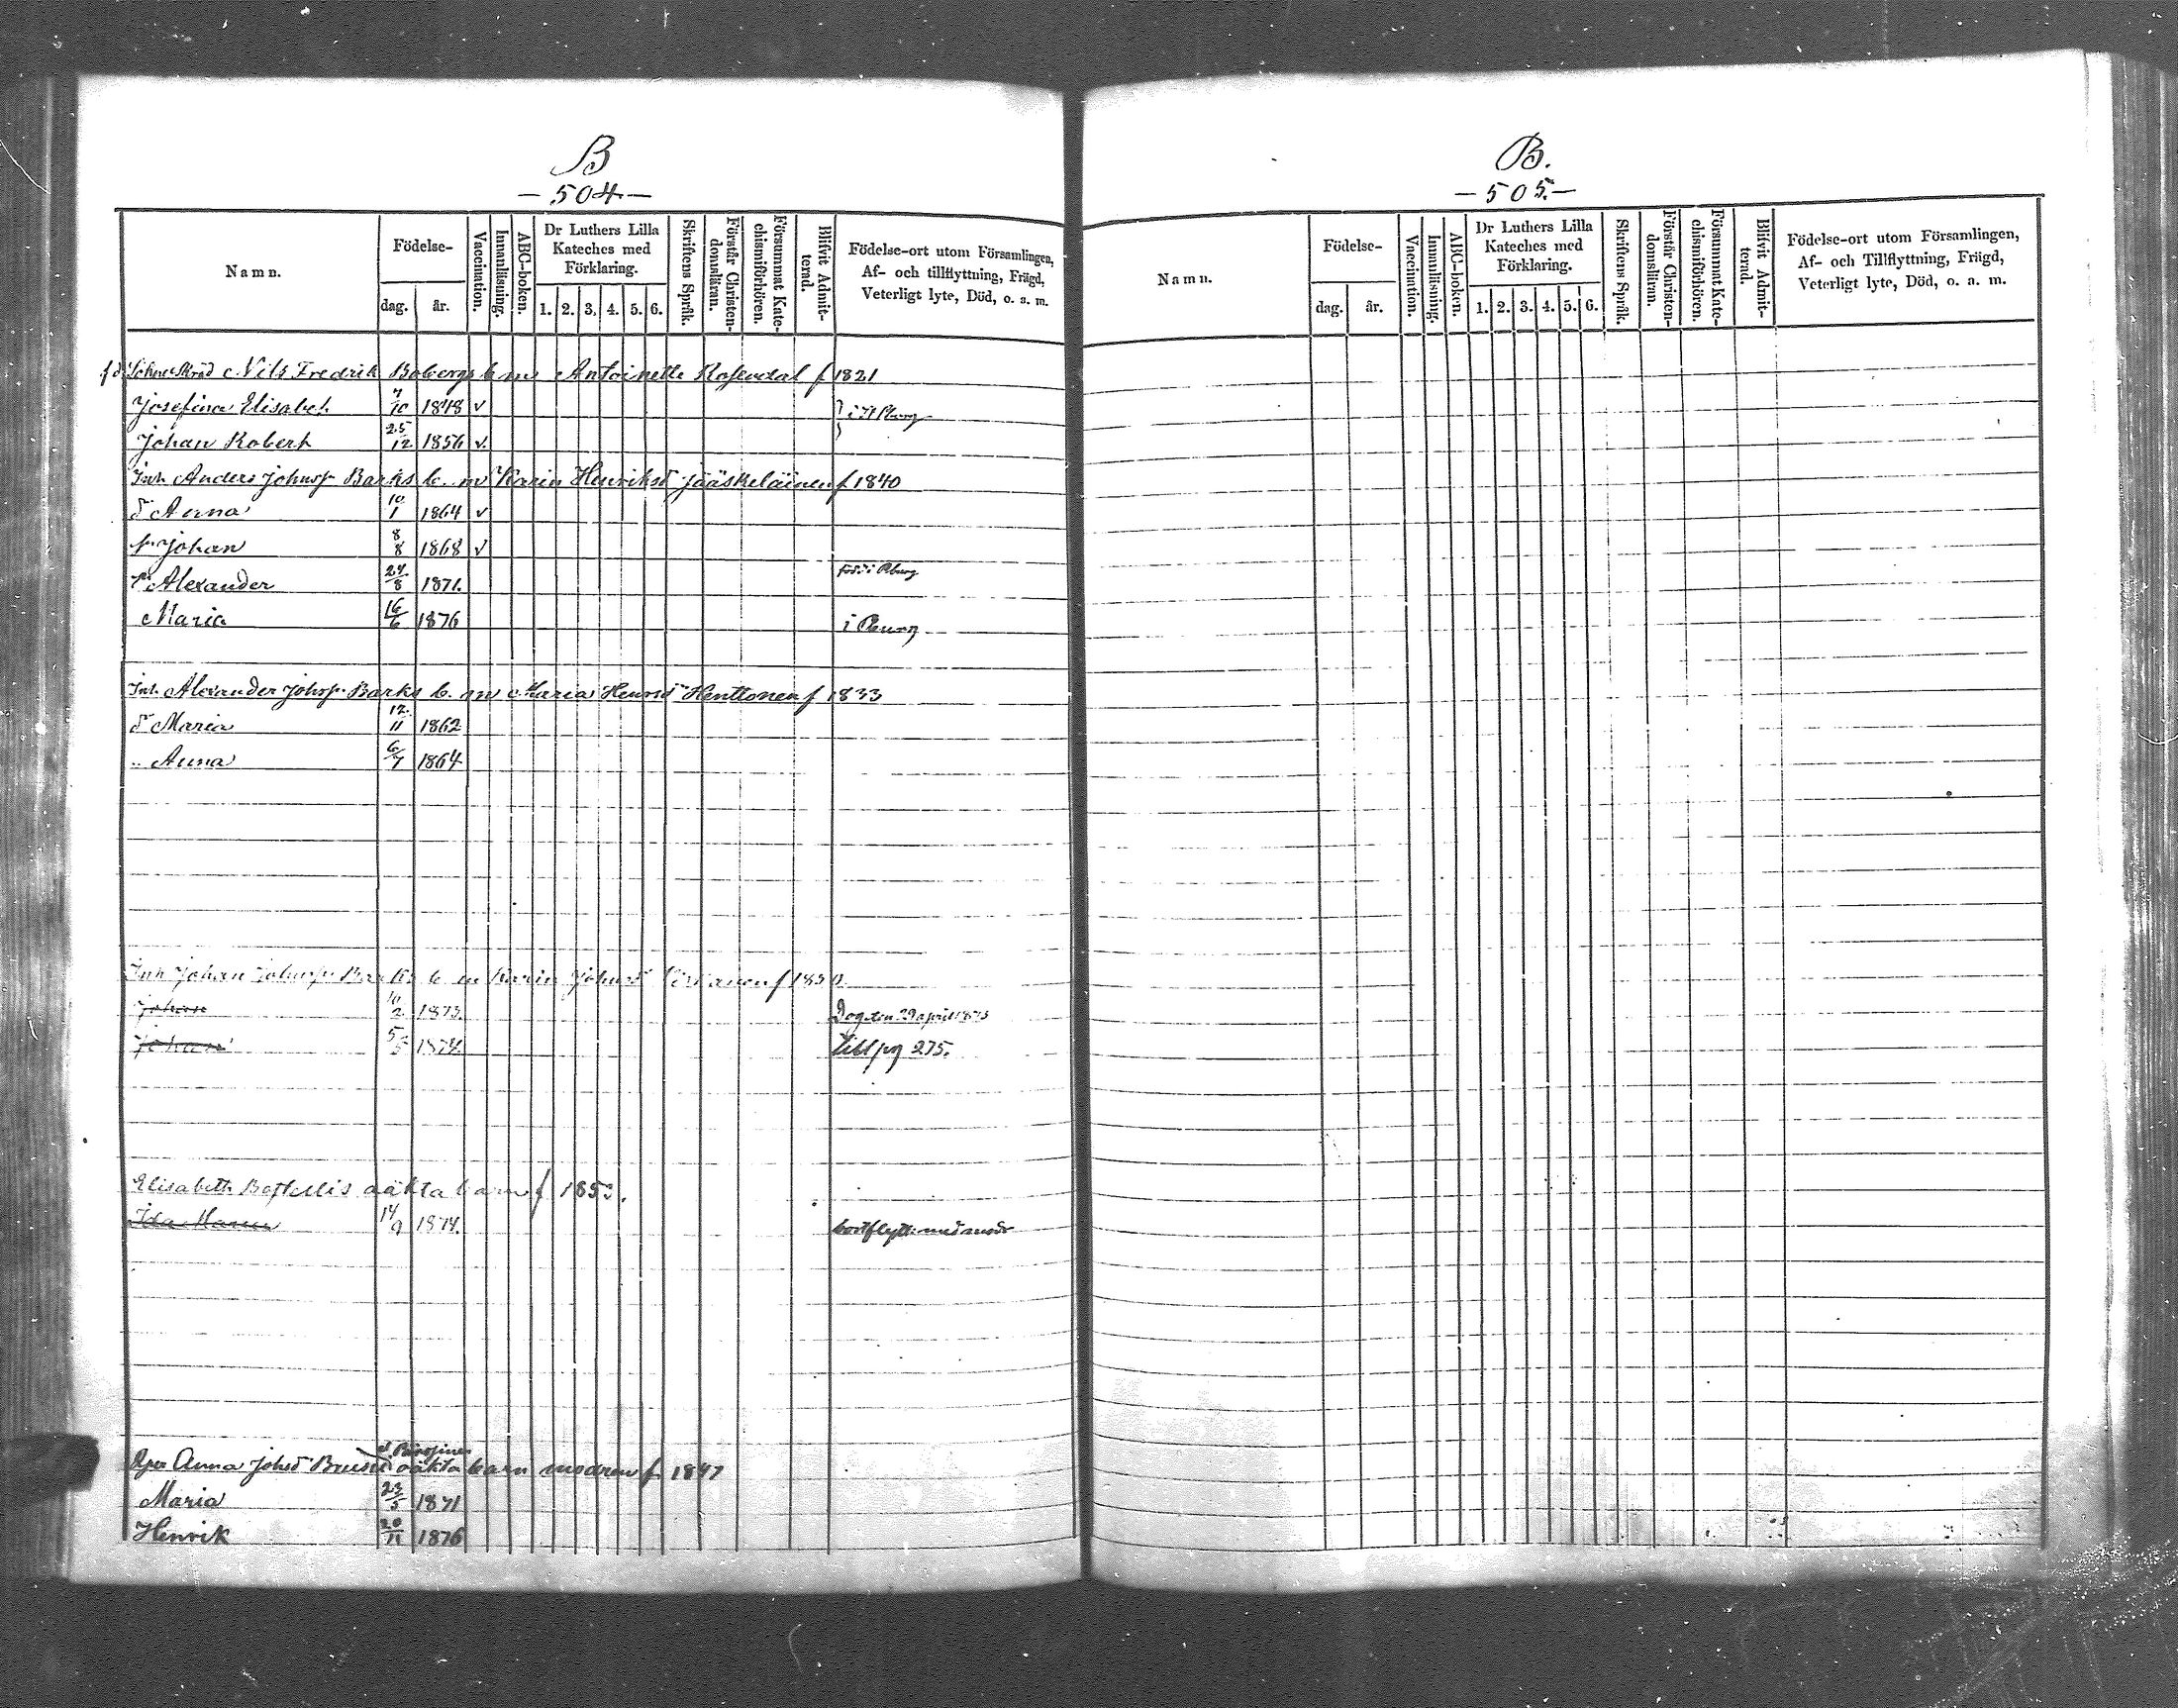 B
— 504 —
Namn.
Födelse-
dag.
år.
Vaccination.
Innanläsning.
ABC-boken.
Dr Luthers Lilla
Kateches med
Förklaring.
1. 2. 3. 4. 5. 6.
Skriftens Språk.
Förstår Christen-
domsläran.
Försummat Kate-
chismiförhören.
Blifvit Admit-
terad.
Födelse-ort utom Församlingen,
Af- och tillflyttning, Frägd,
Veterligt lyte, Död, o. s. m.
Nils Fredrik Bobergs b m Antoinette Rosendal f 1821
Josefina Elisabet 7/10 1848 v
Johan Robert 25/12 1856 v.
Inh. Anders Johnsp Barks b. m Karin Henriksd Jääskeläinen f 1840
d Anna 10/1 1864 v
p Johan 8/8 1868 v
p Alexander 24/8 1871. född i Pburg
Maria 16/6 1876 i Pburg
Inh. Alexander Johsp. Barks b. m Maria Henrsd Henttonen f 1833
d Maria 12/11 1862
.. Anna 6/7 1864
Inh Johan Johnsp. Barks b m Karin Johnsd f 185
Johan 10/2 1873. Dog den 29 april 1873
Johan 5/5 1874. till pg 275.
Elisabeth oäkta barn f 1853.
Ida Maria 14/9 1874. bortflytt. med modr
Anna Johsd oäkta barn modren f. 1847
Maria 23/5 1871
Henrik 20/11 1876
B.
— 505. —
Namn.
Födelse-
dag.
år.
Vaccination.
Innanläsning.
ABC-boken.
Dr Luthers Lilla
Kateches med
Förklaring.
1. 2. 3. 4. 5. 6.
Skriftens Språk.
Förstår Christen-
domsläran.
Försummat Kate-
chismiförhören.
Blifvit Admit-
terad.
Födelse-ort utom Församlingen,
Af- och Tillflyttning, Frägd,
Veterligt lyte, Död, o. a. m.